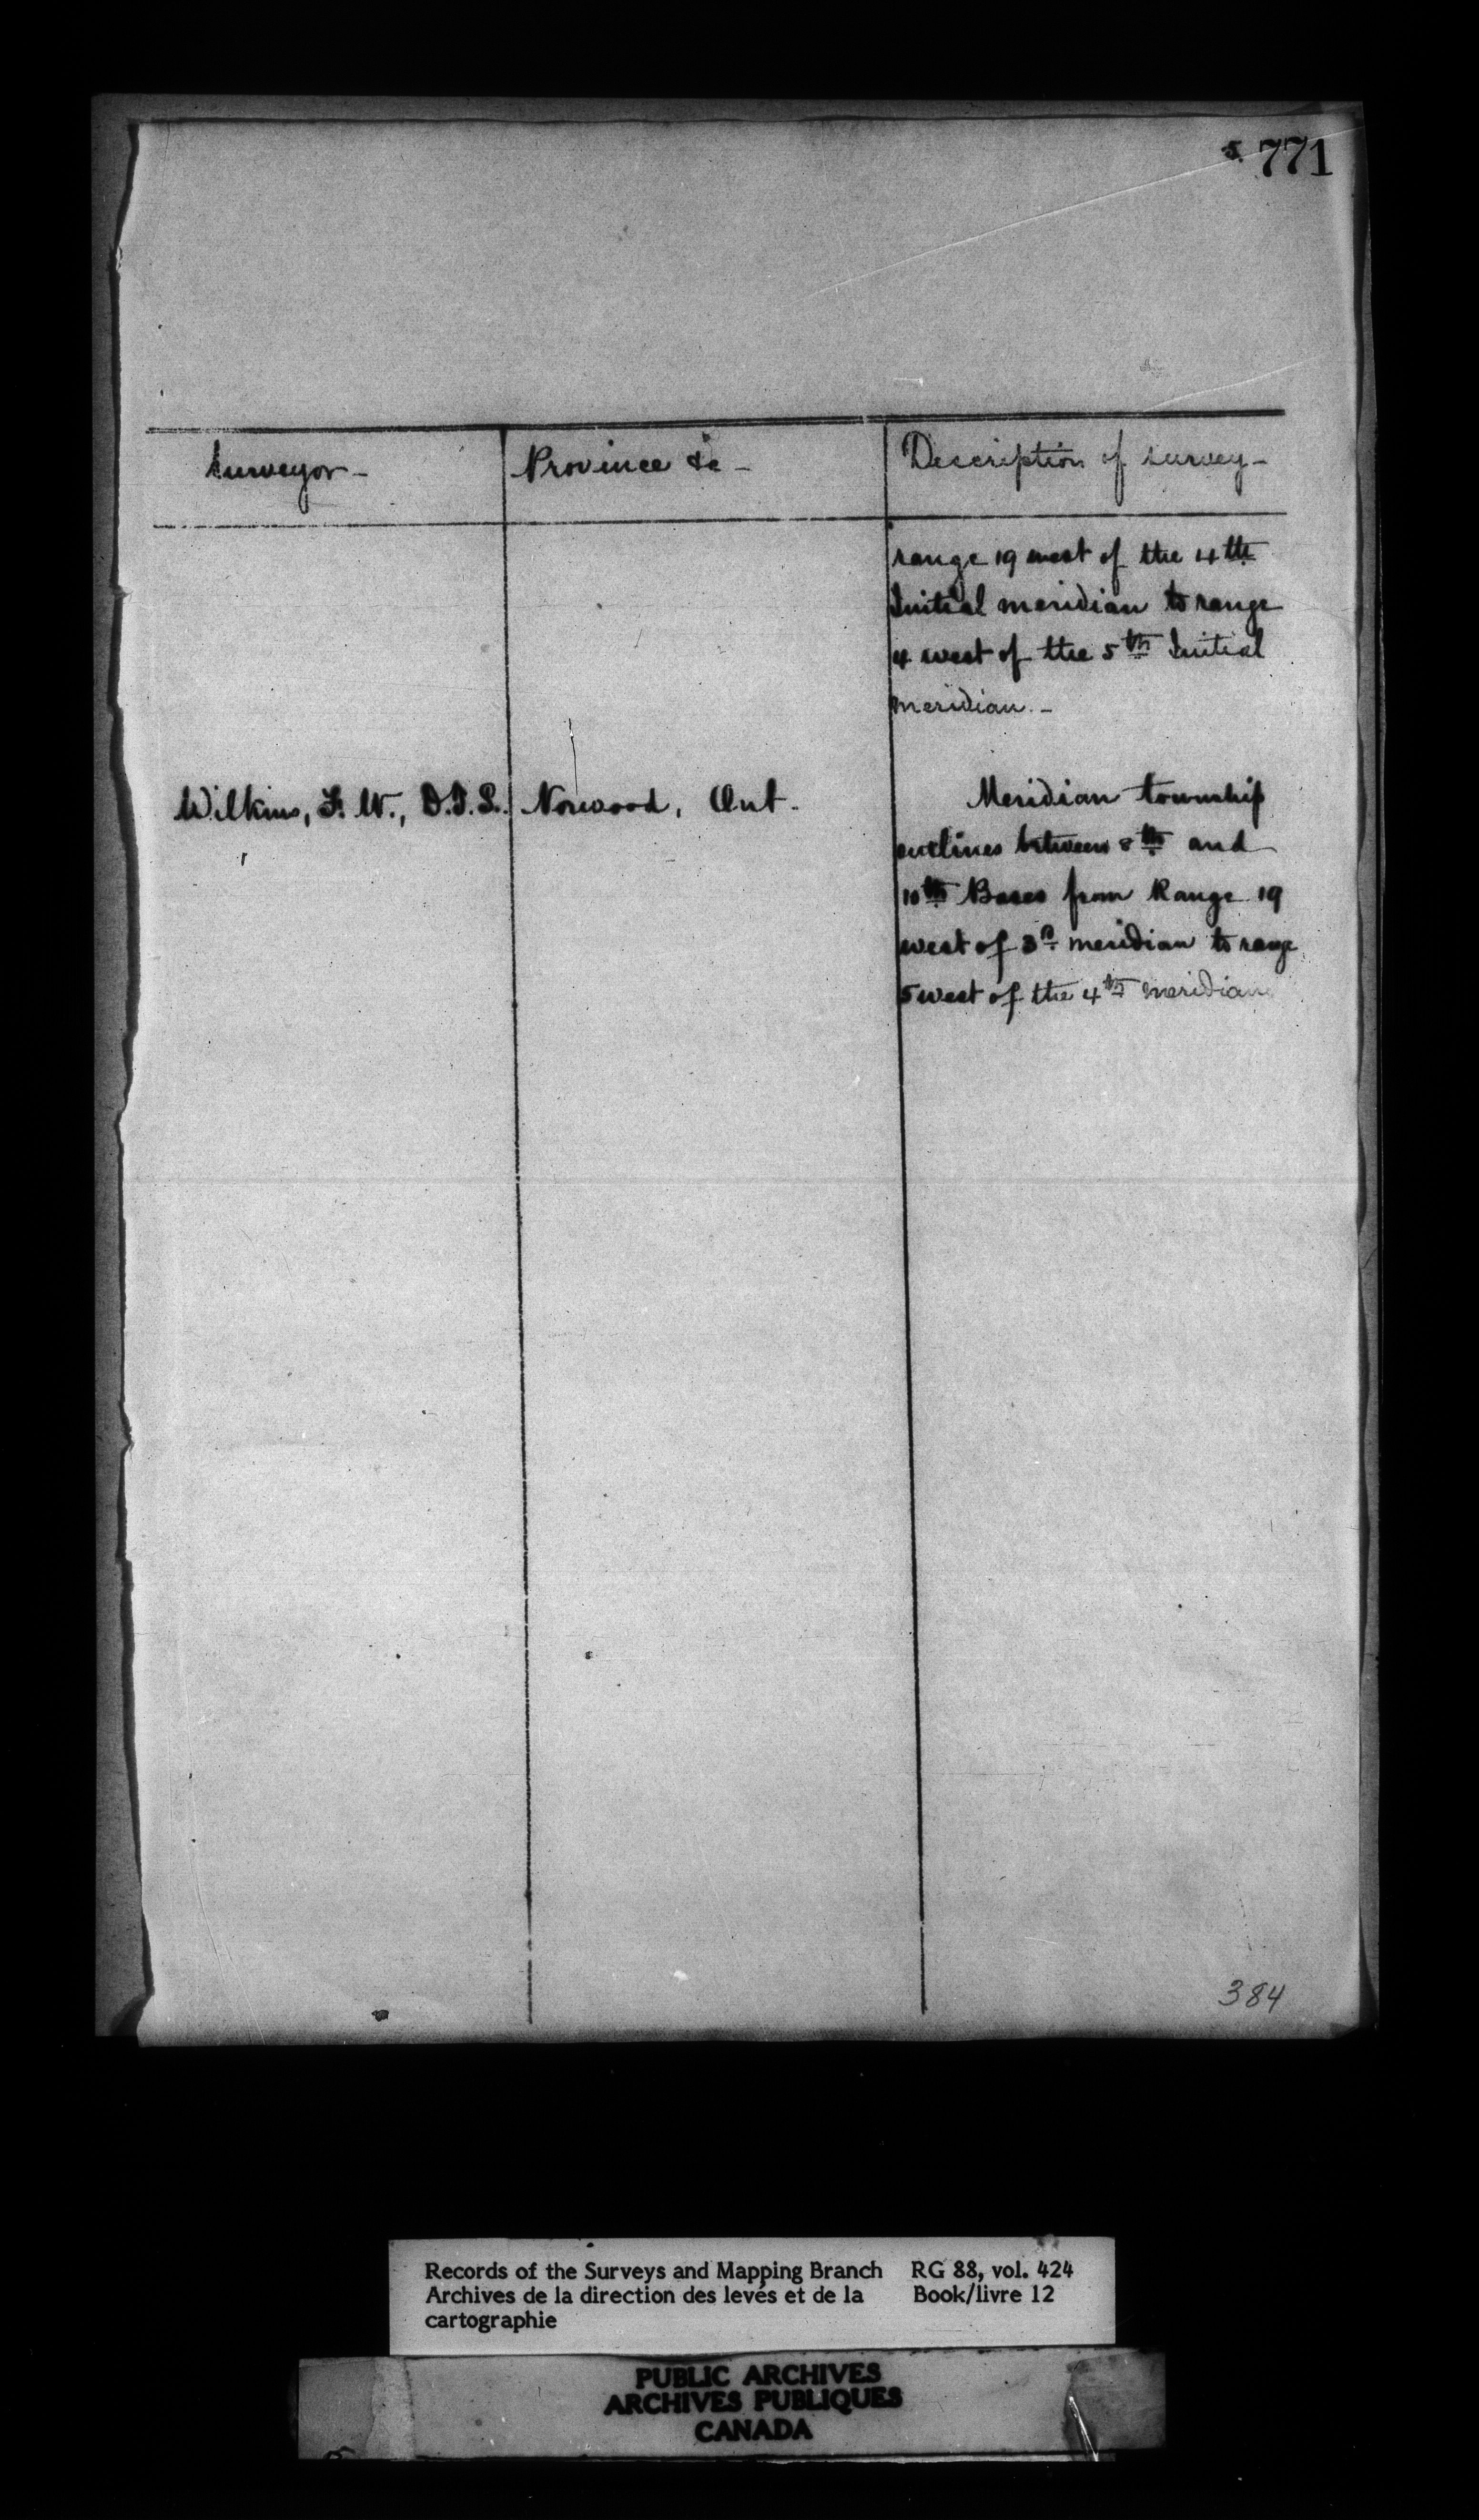 5. 771
Surveyor - Province &c - Description of survey -
range 19 west of the 4th
Initial meridian to range
4 west of the 5th Initial
meridian. -
Wilkins, F. W., D.T.S. Norwood, Ont. Meridian township
outlines between 8th and
10th Bases from Range 19
west of 3rd meridian to range
5 west of the 4th meridian
384
Records of the Surveys and Mapping Branch RG 88, vol. 424
Archives de la direction des levés et de la Book/livre 12
cartographie
PUBLIC ARCHIVES
ARCHIVES PUBLIQUES
CANADA